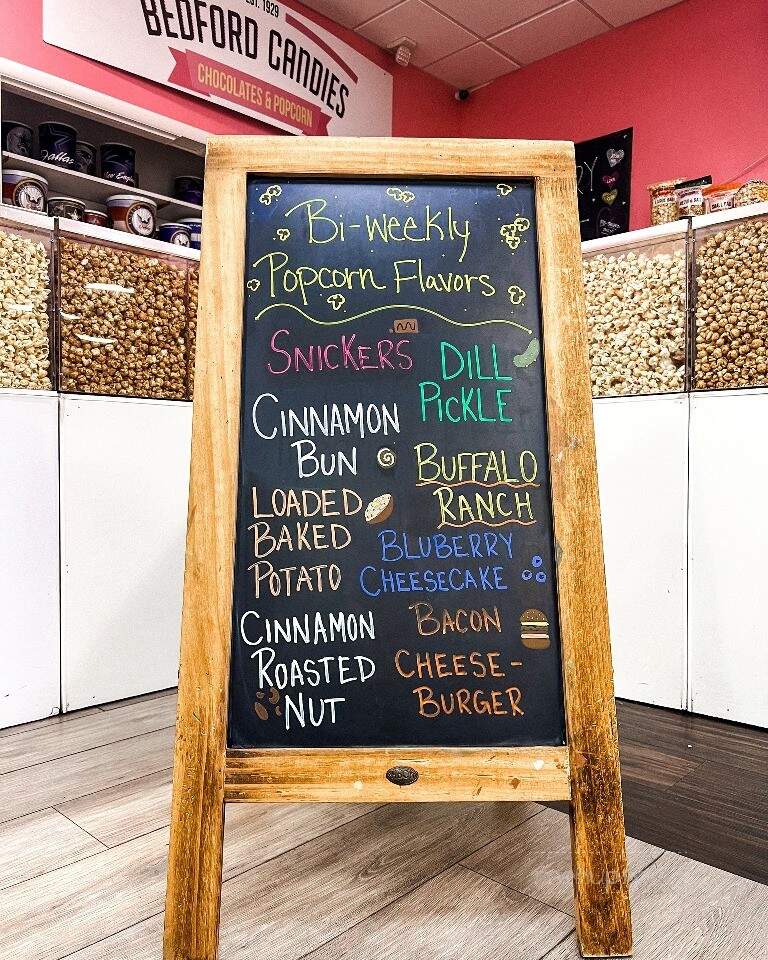 EST. 1929
BEDFORD CANDIES
CHOCOLATES & POPCORN
Dallas
Bi-weekly
Popcorn Flavors
SNICKERS
DILL
PICKLE
CINNAMON
BUN
BUFFALO
RANCH
LOADED
BAKED
POTATO
BLUBERRY
CHEESECAKE
CINNAMON
ROASTED
NUT
BACON
CHEESE-
BURGER